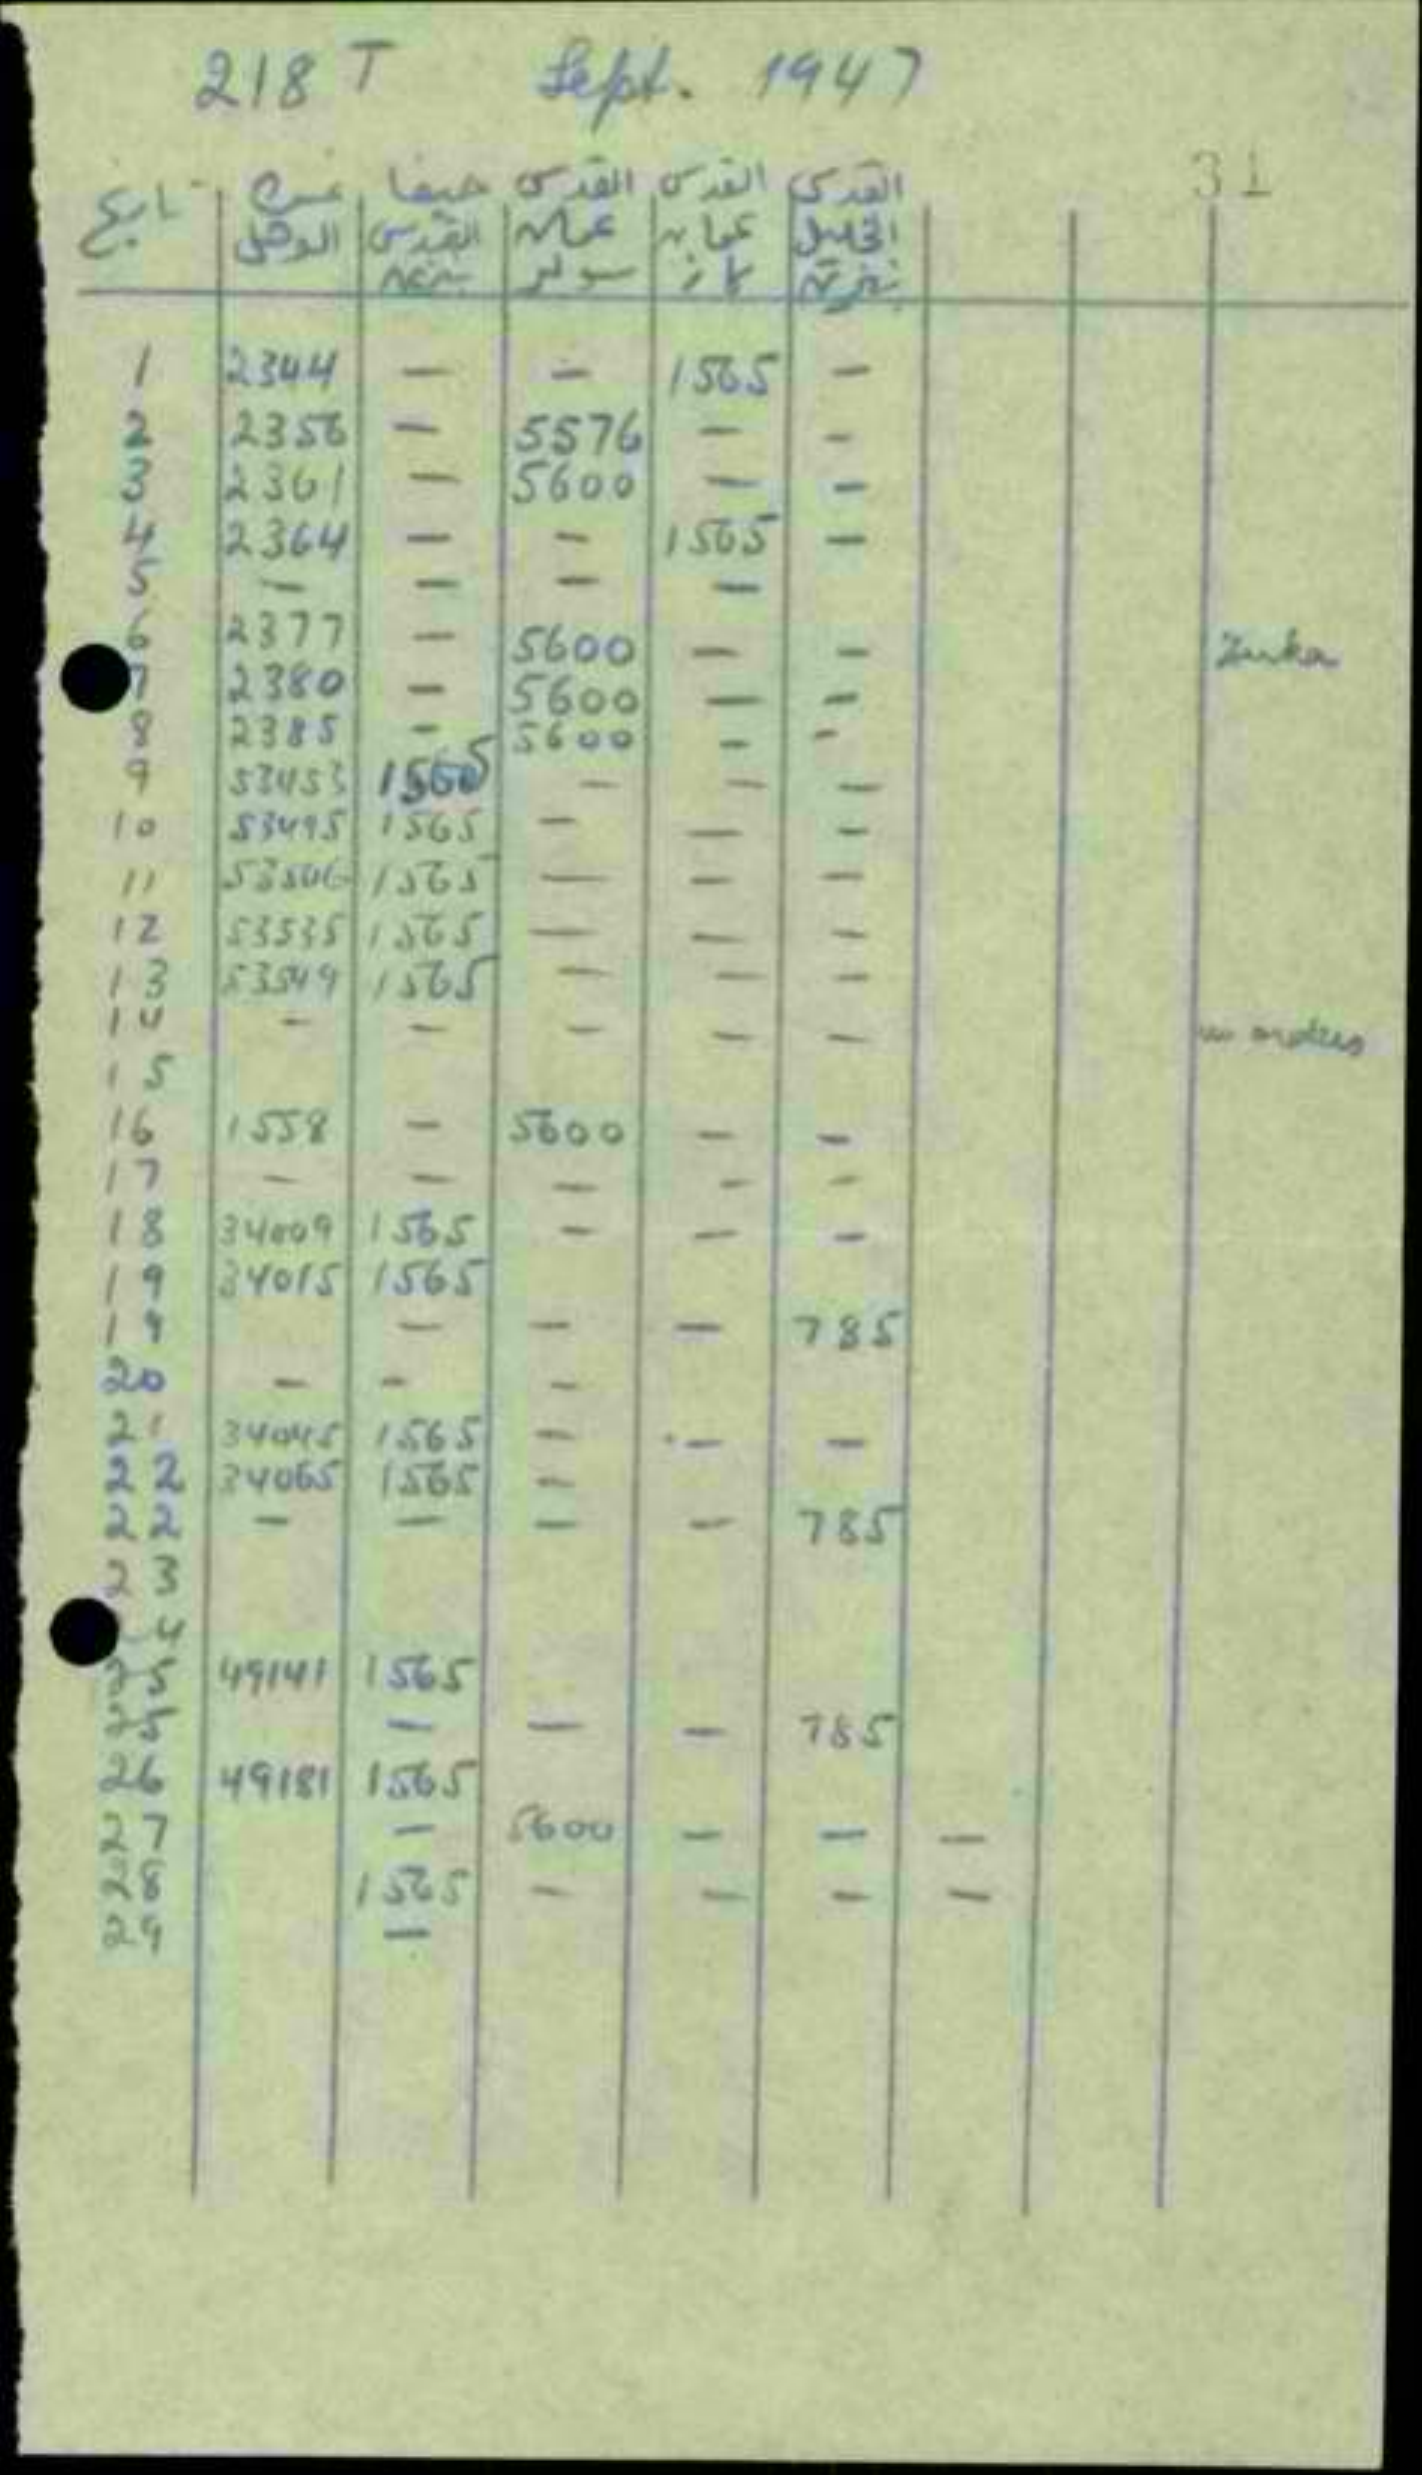 218 T Sept. 1947
31
تاريخ حيفا القدس القدس القدس
القدس عمان عمان الخليل
بنزين سولر كاز
1 2344 — — 1565 —
2 2356 — 5576 — —
3 2361 — 5600 — —
4 2364 — — 1565 —
5 — — — —
6 2377 — 5600 — — Zerka
7 2380 — 5600 — —
8 2385 — 5600 — —
9 53453 — — —
10 53495 1565 — — —
11 53506 1565 — — —
12 53535 1565 — — —
13 53549 1565 — — —
14 — — — — — no orders
15
16 1558 — 5600 — —
17 — — — — —
18 34009 1565 — — —
19 34015 1565
19 — — — 785
20 — — —
21 34045 1565 — — —
22 34065 1565 —
22 — — — — 785
23
24
25 49141 1565
25 — — — 785
26 49181 1565
27 — 5600 — — —
28 1565 — — — —
29 —